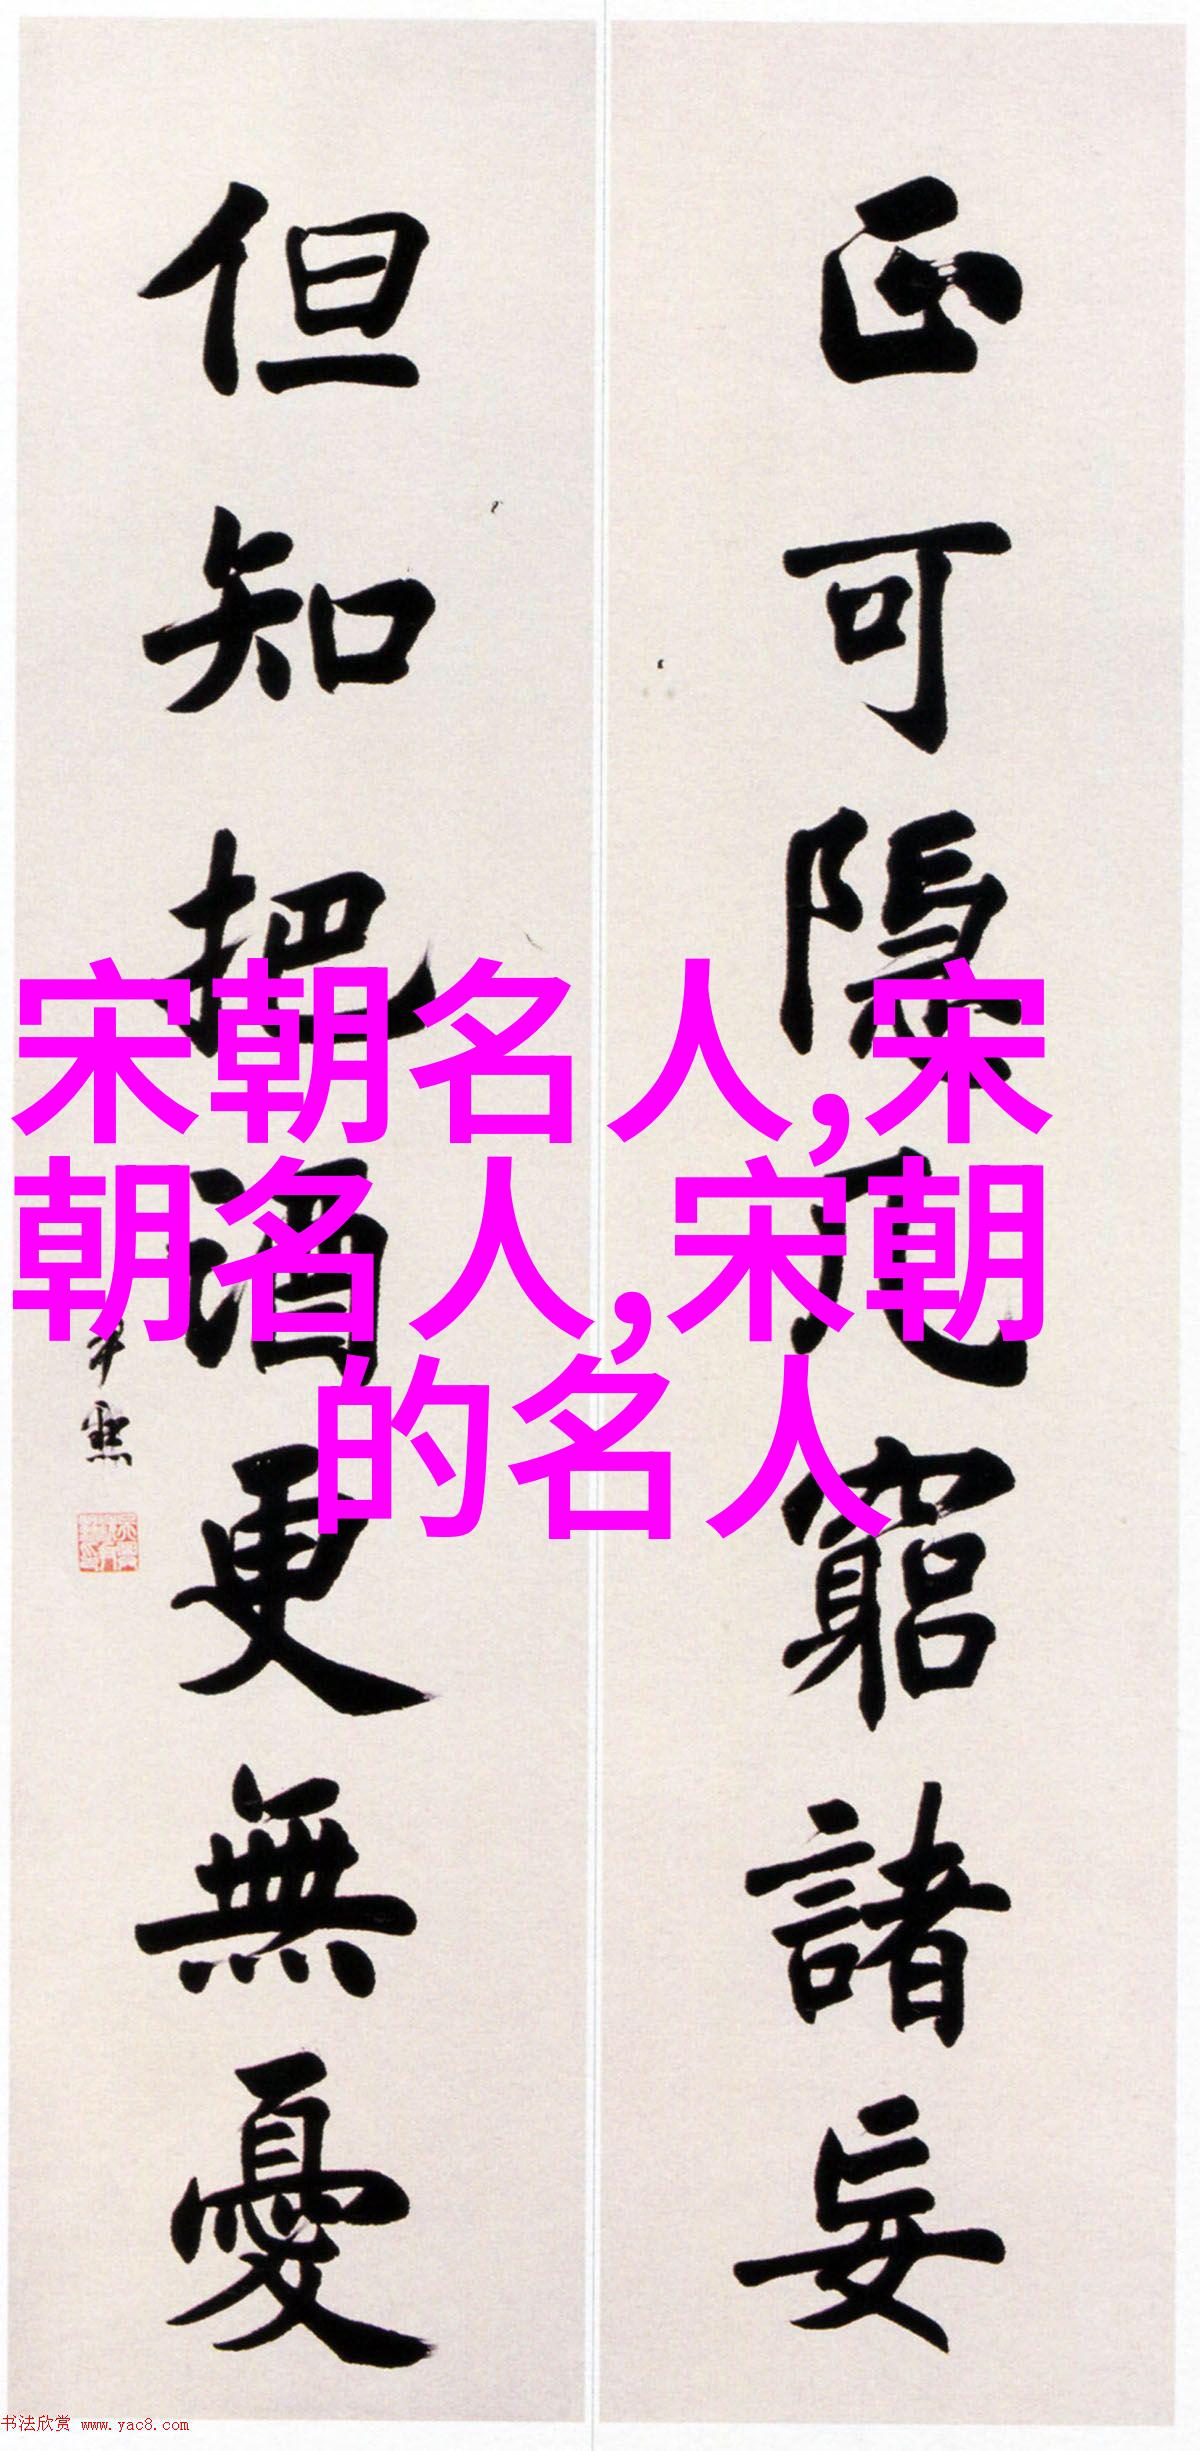 正可隱几窮諸妄
但知把酒更無憂
尹默
宋朝名人,宋
朝名人,宋朝
的名人
书法欣赏 www.yac8.com